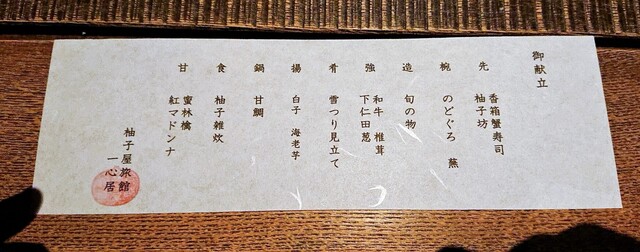 御献立
先 香箱蟹寿司
柚子坊
椀 のどぐろ 蕪
造 旬の物
強 和牛 椎茸
下仁田葱
肴 雪つり見立て
揚 白子 海老芋
鍋 甘鯛
食 柚子雑炊
甘 蜜林檎
紅マドンナ
柚子屋旅館
一心居